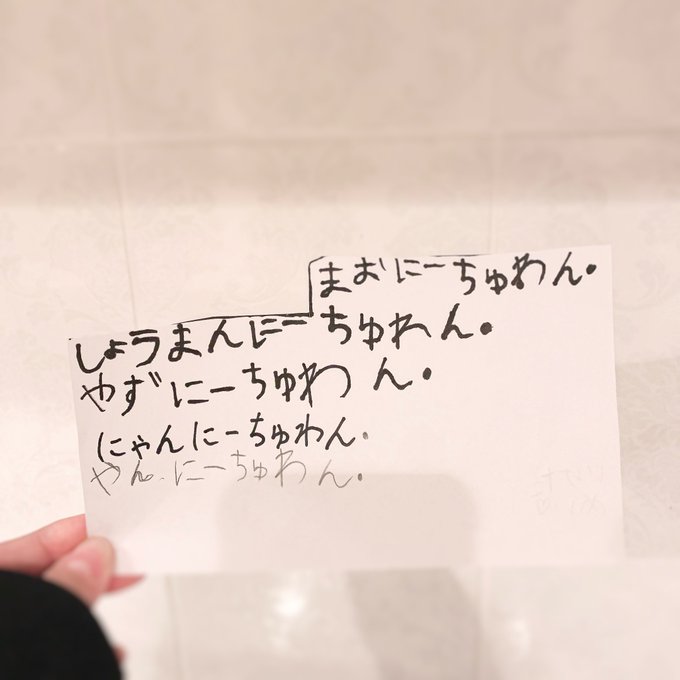 まおにーちゅわん。
しょうまんにーちゅわん。
やずにーちゅわん。
にゃんにーちゅわん.
やん.にーちゅわん。